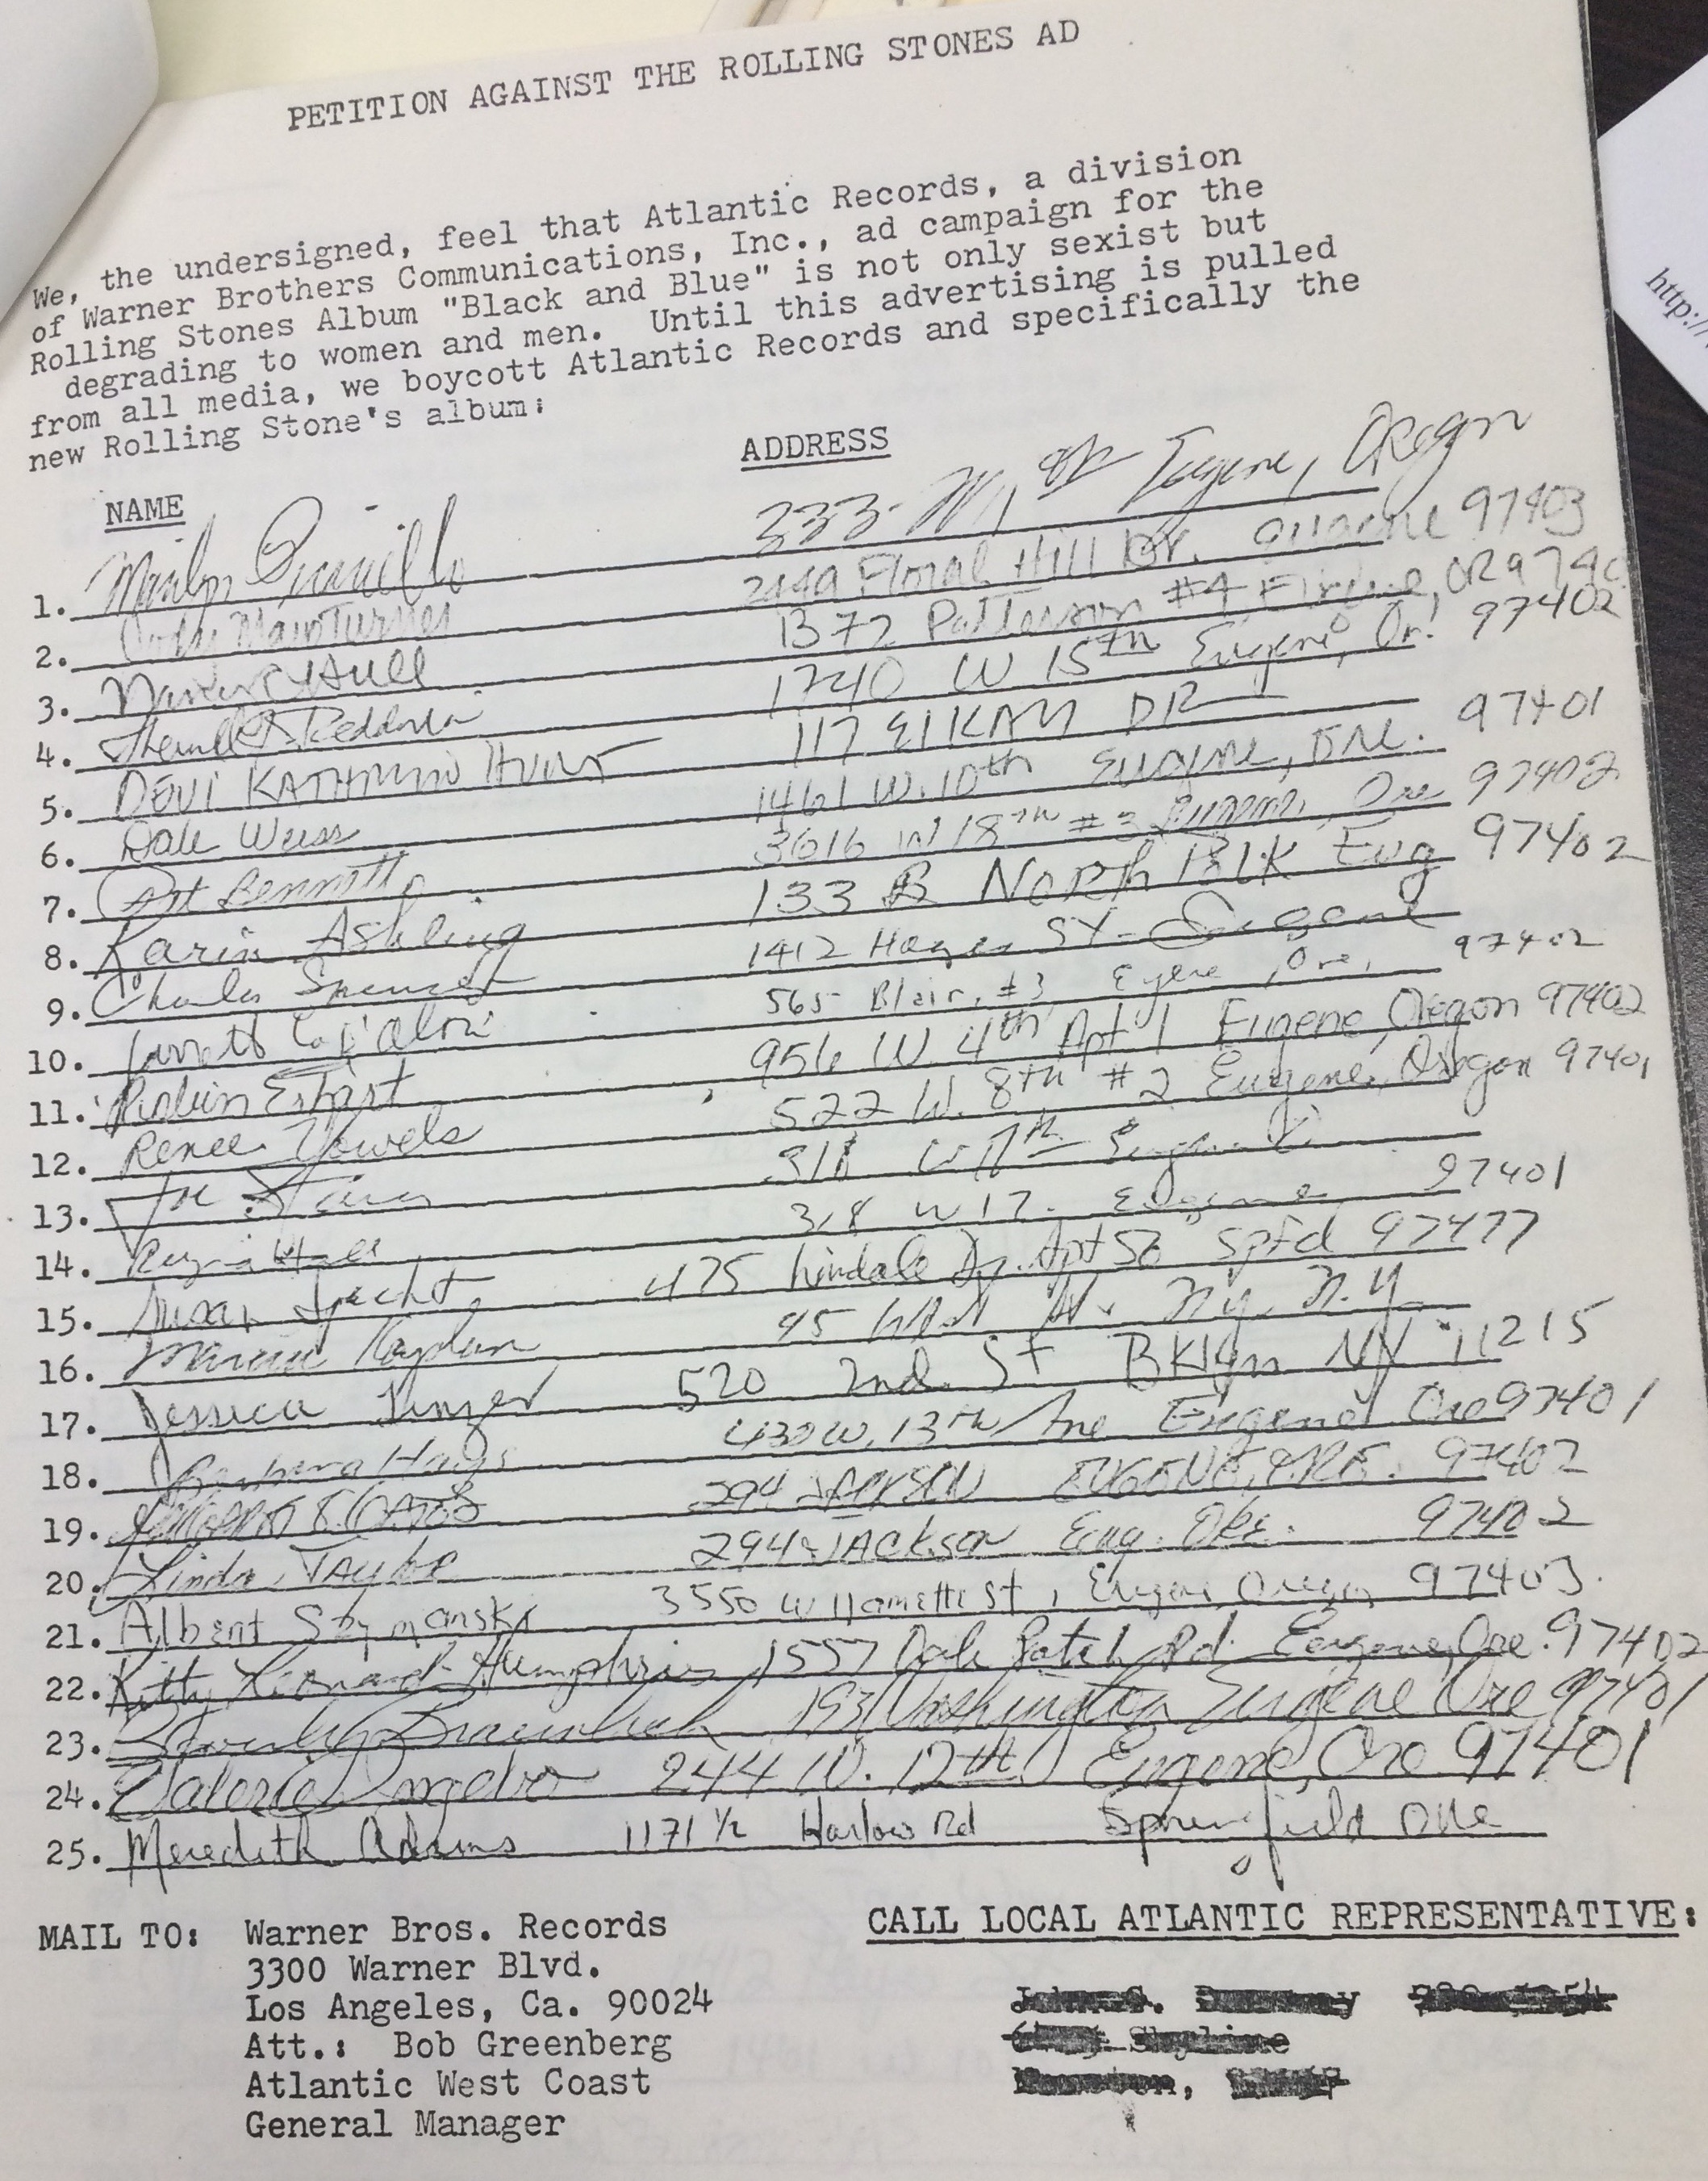 PETITION AGAINST THE ROLLING STONES AD
We, the undersigned, feel that Atlantic Records, a division
of Warner Brothers Communications, Inc., ad campaign for the
Rolling Stones Album "Black and Blue" is not only sexist but
degrading to women and men. Until this advertising is pulled
from all media, we boycott Atlantic Records and specifically the
new Rolling Stone's album:
NAME ADDRESS
1. Marilyn 333 W. Eugene, Oregon
2. Floral Hill Dr. eugene 97403
3. Hull 1372 Patterson #4 Eugene, OR
4. 1740 W 15th Eugene, Or. 97402
5. DEVI 117 ElKAY DR
6. Dale Weiss 1461 W. 10th Eugene, ORE. 97401
7. Bennett 3616 W 18th #3 Eugene, Ore 97402
8. Karin Ashling 133 B North Polk Eug 97402
9. Charles Spencer 1412 Hayes St- Eugene
10. 565 Blair, #3 Eugene, Ore, 97402
11. Robin 956 W 4th Apt 1 Eugene, Oregon 97402
12. Renee Vowels 522 W. 8th #2 Eugene, Oregon 97401
13. Joe Eugene
14. 318 W 17. Eugene 97401
15. Susan Specht 475 Lindale Apt 58 Spfd 97477
16. 95 West N.Y. N.Y.
17. Jessica 520 2nd St Bklyn NY 11215
18. Barbara Hays 430 W. 13th Ave Eugene Ore 97401
19. 294 JACKSON EUGENE, ORE. 97402
20. Linda Taylor 294 JACKSON Eug. ORE. 97402
21. Albert Szymanski 3550 Willamette St, Eugene, Oregon 97403.
22. Kitty Leonard Humphries 1557 Oak Patch Rd. Eugene, Ore. 97402
23. Beverly Washington Eugene Ore 97401
24. Valerie 244 W. 12th Eugene, Ore 97401
25. Meredith Adams 1171 1/2 Harlow Rd Springfield ORe
MAIL TO: Warner Bros. Records
3300 Warner Blvd.
Los Angeles, Ca. 90024
Att.: Bob Greenberg
Atlantic West Coast
General Manager
CALL LOCAL ATLANTIC REPRESENTATIVE:
http:/